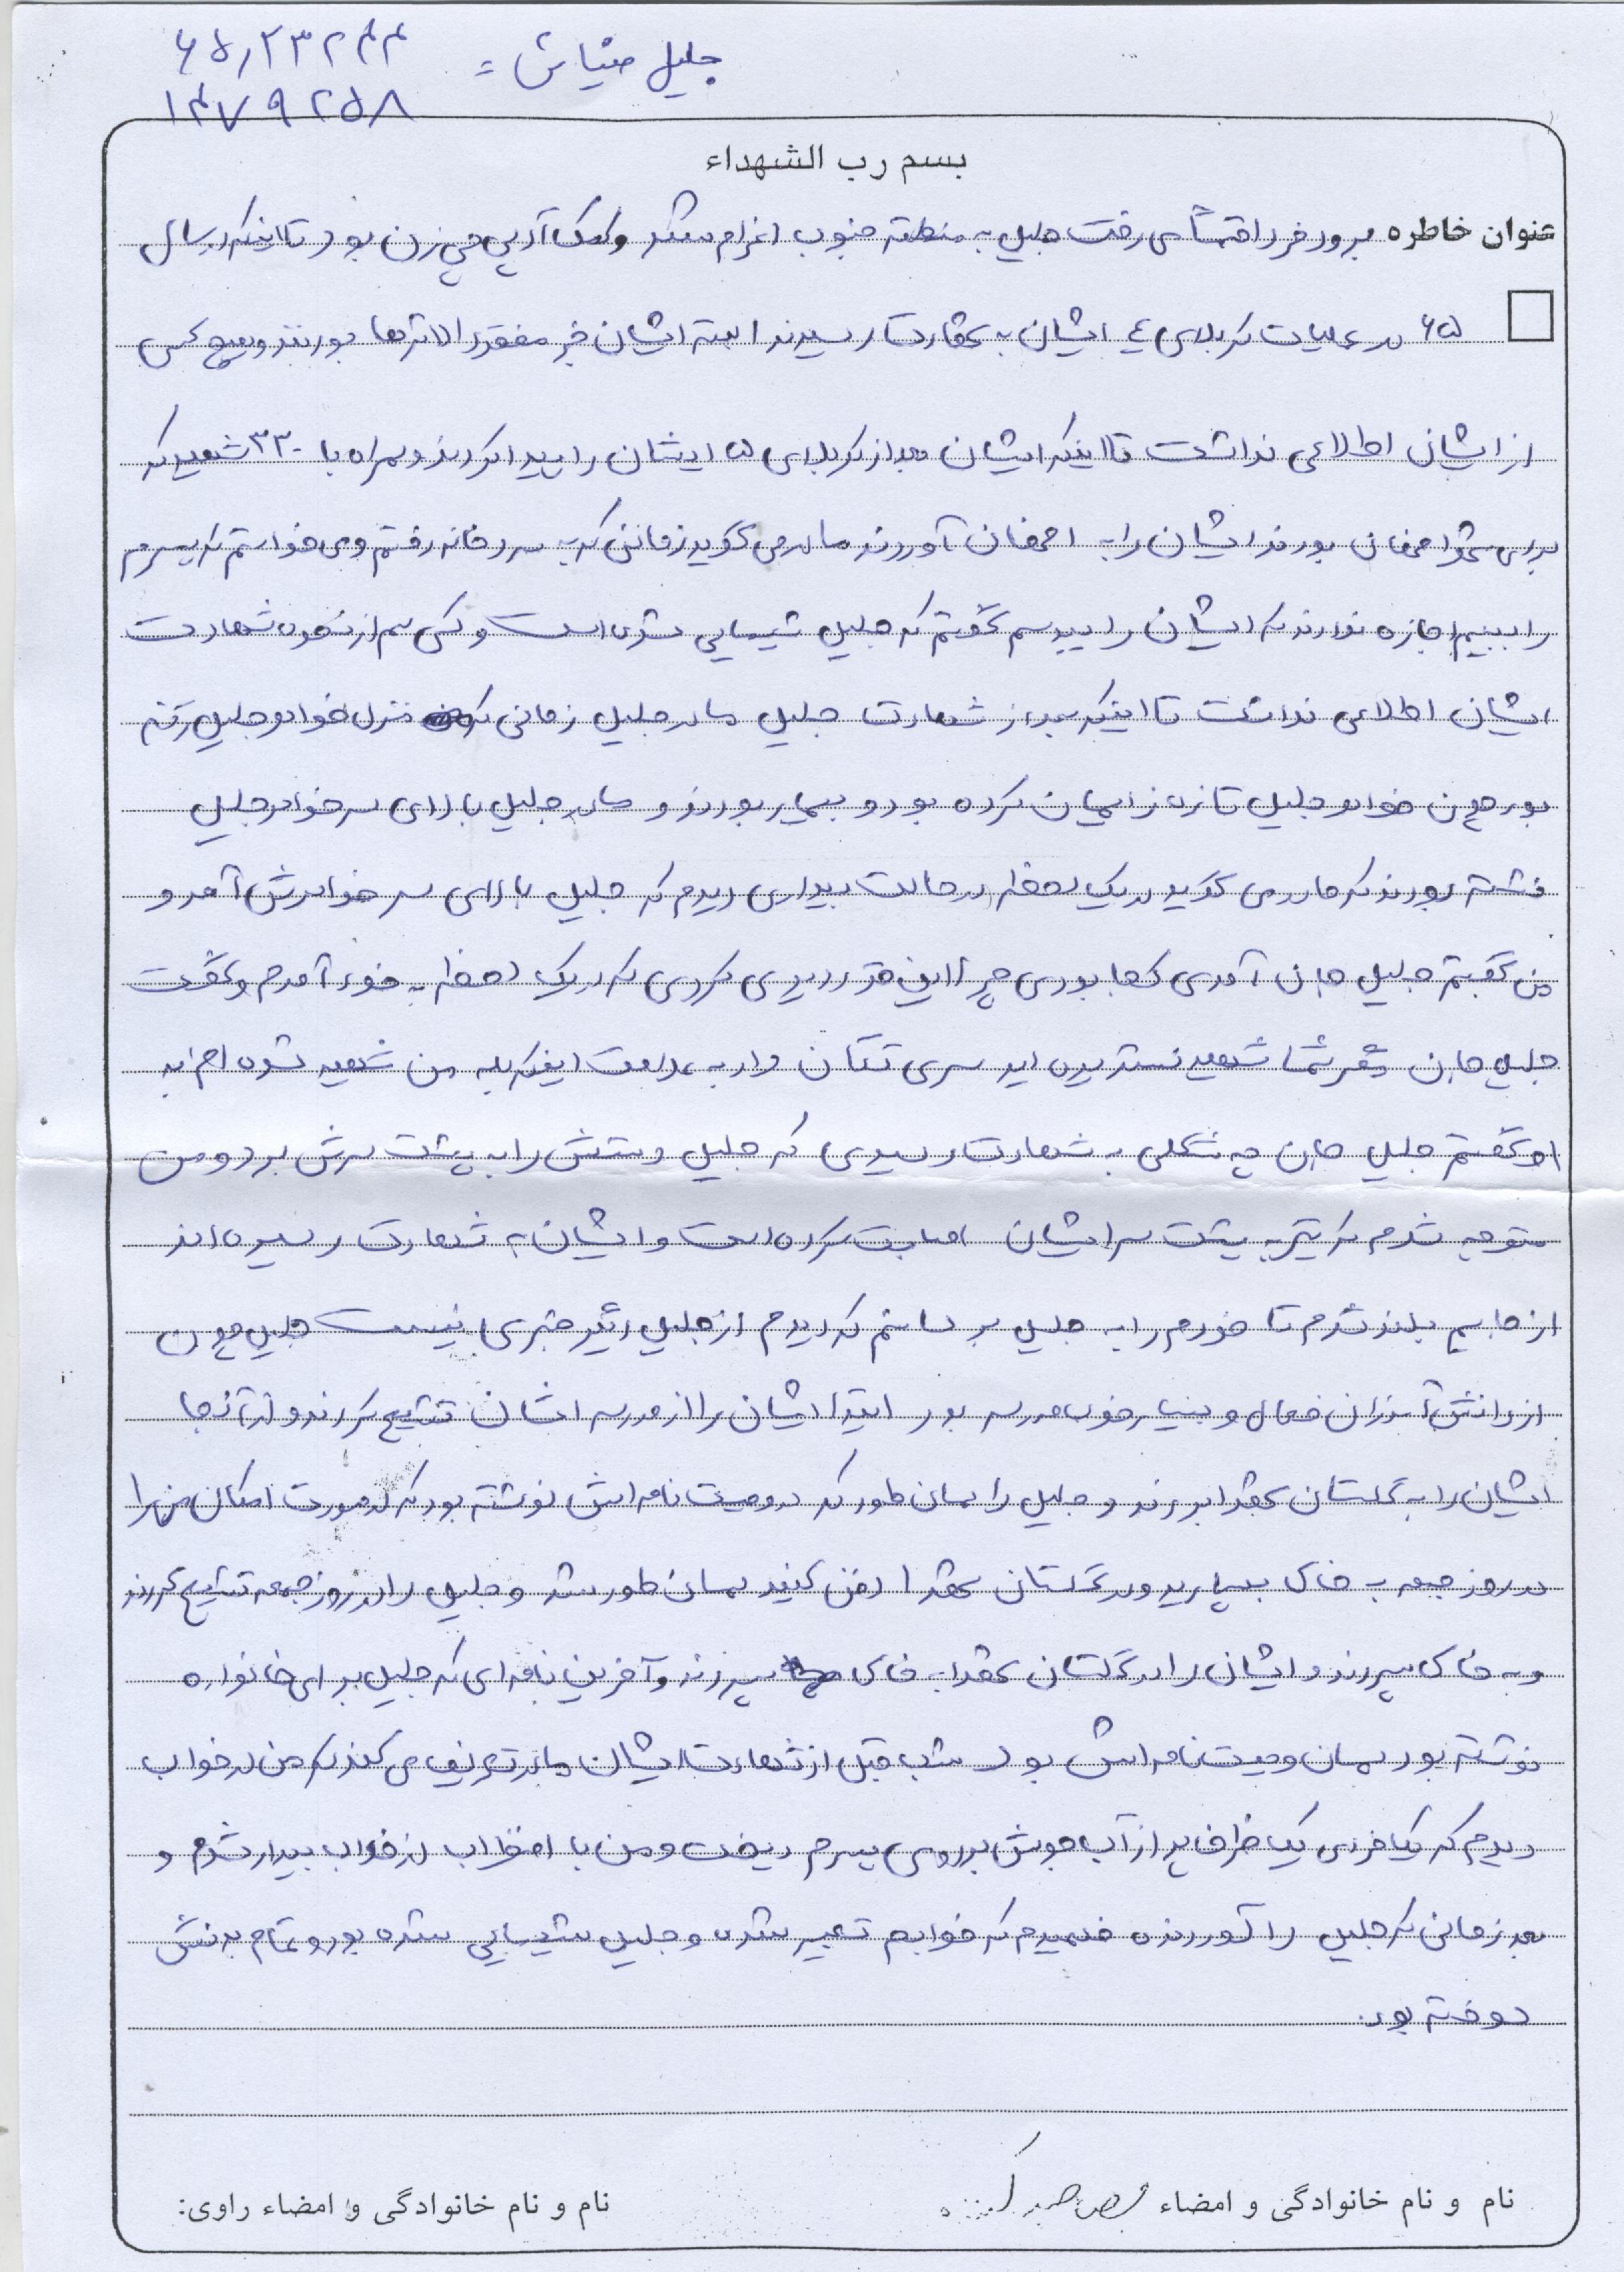 جلیل ضیاش = ۶۵/۲۳۲۴۴
۱۴۷۹۲۵۸
بسم رب الشهداء
عنوان خاطره برود فردا قتشا می رفت جلیل به منطقه جنوب اعزام شد و کمک آرپی جی زن بود تا اینکه در سال
۶۵ در عملیات کربلای ٤ ایشان به شهادت رسیدند البته ایشان جز مفقود الاثرها بودند و هیچ کس
از ایشان اطلاعی نداشت تا اینکه ایشان بعد از کربلای ۵ ایشان را پیدا کردند و همراه با ۳۳۰ شهید که
برای شهر اصفهان بودند ایشان را به اصفهان آوردند مادر می گوید زمانی که به سردخانه رفتم و می خواستم که پسرم
را ببینم اجازه ندادند که ایشان را ببوسم گفتم که جلیل شیمیایی شده است و کسی هم از نحوه شهادت
ایشان اطلاعی نداشت تا اینکه بعد از شهادت جلیل مادر جلیل زمانی که منزل خواهر جلیل رفته
بود چون خواهر جلیل تازه زایمان کرده بود و بیمار بودند و مادر جلیل بالای سر خواهر جلیل
نشسته بودند که مادر می گوید در یک لحظه در حالت بیداری دیدم که جلیل بالای سر خواهرش آمد و
من گفتم جلیل جان آمدی کجا بودی چرا این قدر دیر کردی که در یک لحظه به خود آمدم و گفت
جلیل جان مگر شما شهید نشده اید سری تکان داد به علامت اینکه بله من شهید شده ام به
او گفتم جلیل جان چه شکلی به شهادت رسیدی که جلیل دستش را به پشت سرش برد و من
متوجه شدم که تیر به پشت سر ایشان اصابت کرده است و ایشان به شهادت رسیده اند
از جایم بلند شدم تا خودم را به جلیل برسانم که دیدم از جلیل دیگر خبری نیست جلیل چون
از دانش آموزان فعال و بسیار خوب مدرسه بود ابتدا ایشان را از مدرسه اشان تشییع کردند و از آنجا
ایشان را به گلستان شهدا بردند و جلیل را همان طور که در وصیت نامه اش نوشته بود که در صورت امکان من را
در روز جمعه به خاک بسپارید و در گلستان شهدا دفن کنید همان طور شد و جلیل را در روز جمعه تشییع کردند
و به خاک سپردند و ایشان را در گلستان شهدا به خاک سپردند و آخرین نامه ای که جلیل برای خانواده
نوشته بود همان وصیت نامه اش بود شب قبل از شهادت ایشان مادر تعریف می کند که من در خواب
دیدم که یک فردی یک ظرف پر از آب جوش بر روی پسرم ریخت و من با اضطراب از خواب بیدار شدم و
بعد زمانی که جلیل را آوردند فهمیدم که خوابم تعبیر شده و جلیل شیمیایی شده بود و تمام بدنش
سوخته بود.
نام و نام خانوادگی و امضاء
نام و نام خانوادگی و امضاء راوی: